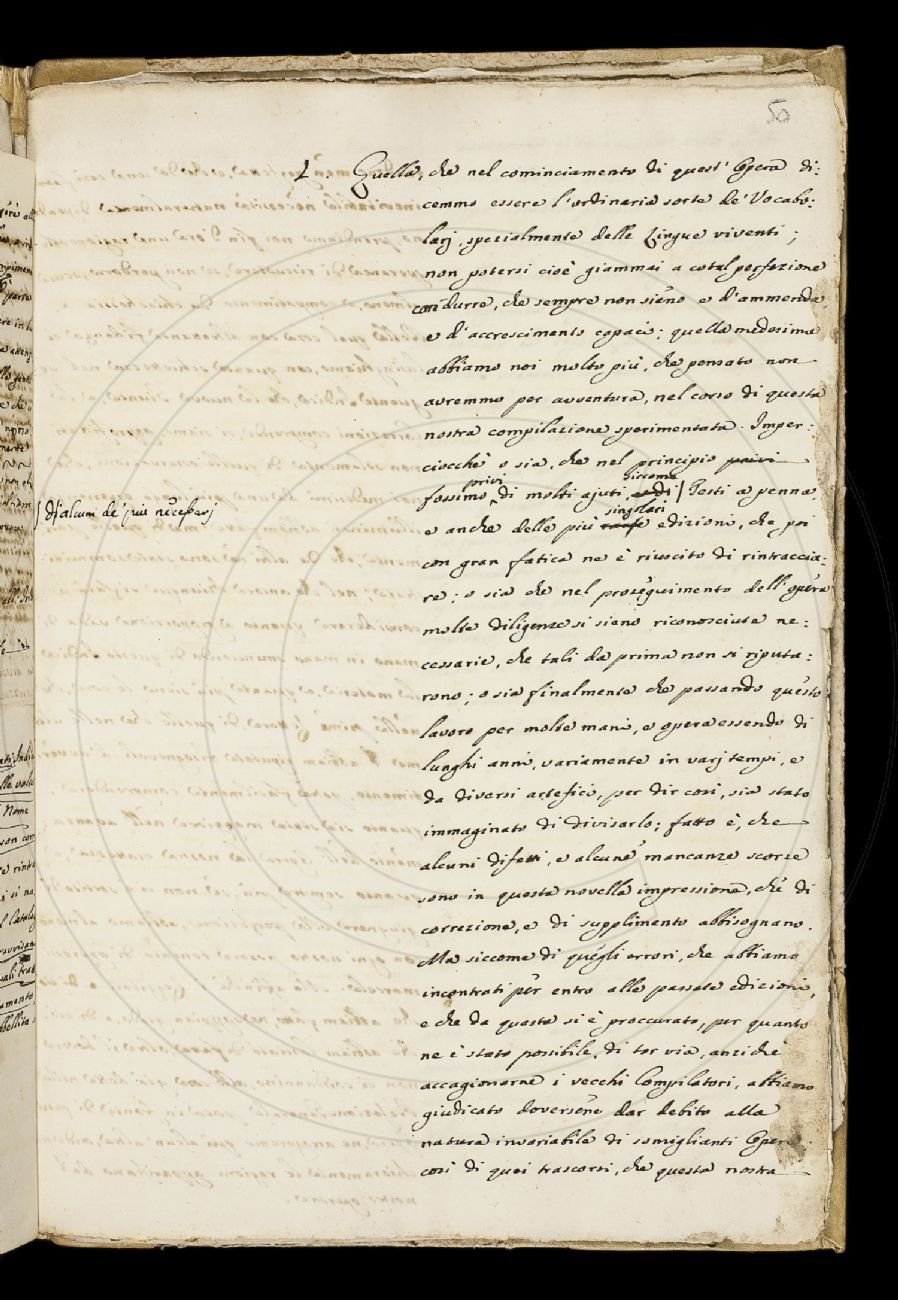 50
L Quella, che nel cominciamento di quest' Opera di:
cemmo essere l'ordinaria sorte de' Vocabo:
larj, spezialmente delle Lingue viventi;
non potersi cioè giammai a cotal perfezione
condurre, che sempre non sieno e d'ammenda
e d'accrescimento capaci; quella medesima
abbiamo noi molto più, che pensato non
avremmo per avventura, nel corso di questa
nostra compilazione sperimentata. Imper:
ciocchè o sia, che nel principio privi
privi siccome
fossimo di molti ajuti, e di / Testi a penna,
/ d'alcuni de' più necessarj
singolari
e anche delle più rare edizioni, che poi
con gran fatica ne è riuscito di rintraccia:
re; o sia che nel proseguimento dell'opera
molte diligenze si siano riconosciute ne:
cessarie, che tali da prima non si riputa:
rono; o sia finalmente che passando questo
lavoro per molte mani, e opera essendo di
lunghi anni, variamente in varj tempi, e
da diversi artefici, per dir così, sia stato
immaginato di divisarlo; fatto è, che
alcuni difetti, e alcune mancanze scorse
sono in questa novella impressione, che di
correzione, e di supplimento abbisognano.
Ma siccome di quegli errori, che abbiamo
incontrati per entro alle passate edizioni,
e che da questa si è proccurato, per quanto
ne è stato possibile, di tor via, anzi che
accagionarne i vecchi Compilatori, abbiamo
giudicato doversene dar debito alla
natura invariabile di somiglianti Opere;
così di quei trascorsi, che questa nostra